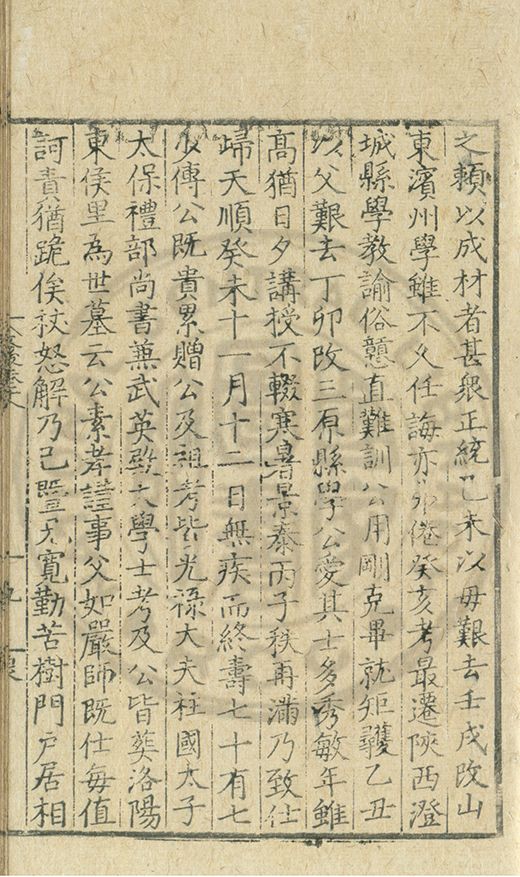 之賴以成材者甚衆正統己未以毋艱去壬戌改山
東濱州學雖不久任誨亦弗倦癸亥考最遷陝西澄
城縣學教諭俗戇直難訓公用剛克畢就矩矱乙丑
以父艱去丁卯改三原縣學公愛其士多秀敏年雖
高猶日夕講授不輟寒暑景泰丙子秩再滿乃致仕
歸天順癸未十一月十二日無疾而終壽七十有七
少傅公既貴累贈公及祖考皆光祿大夫柱國太子
太保禮部尚書蒹武英殿大學士考及公皆葬洛陽
東侯里為世墓云公素孝謹事父如嚴師既仕每值
訶責猶跪俟杖怒解乃已暨兄寬勤苦樹門戶居相